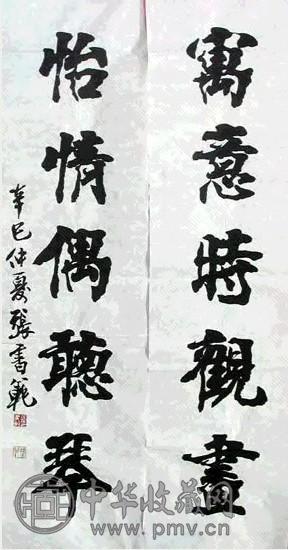 寓意時觀畫
怡情偶聽琴
辛巳仲夏張書範
中华收藏网
www.pmv.cn